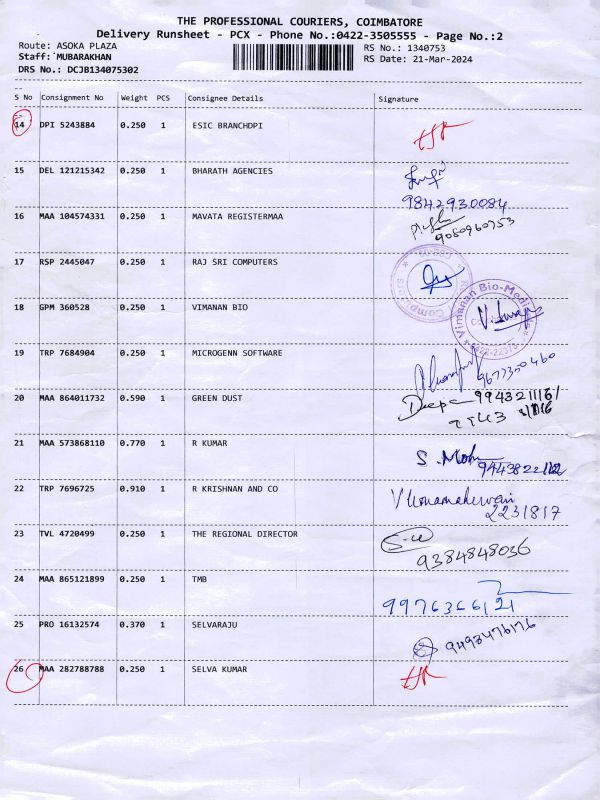 THE PROFESSIONAL COURIERS, COIMBATORE
Delivery Runsheet - PCX - Phone No.:0422-3505555 - Page No.:2
Route: ASOKA PLAZA
RS No.: 1340753
Staff: MUBARAKHAN
RS Date: 21-Mar-2024
DRS No.: DCJB134075302
S No Consignment No Weight PCS Consignee Details Signature
14 DPI 5243884 0.250 1 ESIC BRANCHDPI
15 DEL 121215342 0.250 1 BHARATH AGENCIES
9842930084
16 MAA 104574331 0.250 1 MAVATA REGISTERMAA
9080960753
17 RSP 2445047 0.250 1 RAJ SRI COMPUTERS
18 GPM 360528 0.250 1 VIMANAN BIO
Vimanan Bio-Medi
0422-22375
19 TRP 7684904 0.250 1 MICROGENN SOFTWARE
9677350460
20 MAA 864011732 0.590 1 GREEN DUST
Deepa 9943211161
21 MAA 573868110 0.770 1 R KUMAR
S. Moh
22 TRP 7696725 0.910 1 R KRISHNAN AND CO
V Umamaheswari
2231817
23 TVL 4720499 0.250 1 THE REGIONAL DIRECTOR
9384848036
24 MAA 865121899 0.250 1 TMB
9976366121
25 PRO 16132574 0.370 1 SELVARAJU
9493476176
26 MAA 282788788 0.250 1 SELVA KUMAR